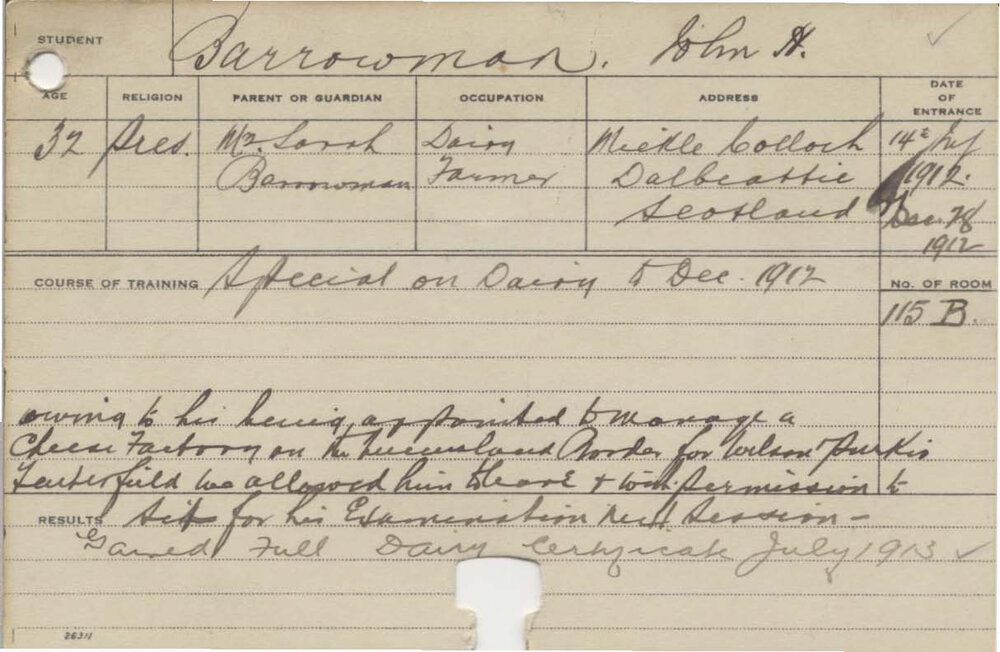 STUDENT Barrowman. John H.
AGE RELIGION PARENT OR GUARDIAN OCCUPATION ADDRESS DATE OF ENTRANCE
32 Pres. Mrs. Sarah Dairy Mickle Colloch 14th
Barrowman Farmer Dalbeattie 1912.
Scotland Dec. 78
1912
COURSE OF TRAINING Special on Dairy to Dec. 1912 No. OF ROOM
115 B.
owing to his being appointed to manage a
Cheese Factory on the Queensland Border for Wilson
Tenterfield we allowed him to leave & with permission to
RESULTS sit for his Examination next Session -
Gained Full Dairy Certificate July 1913 ✓
26311